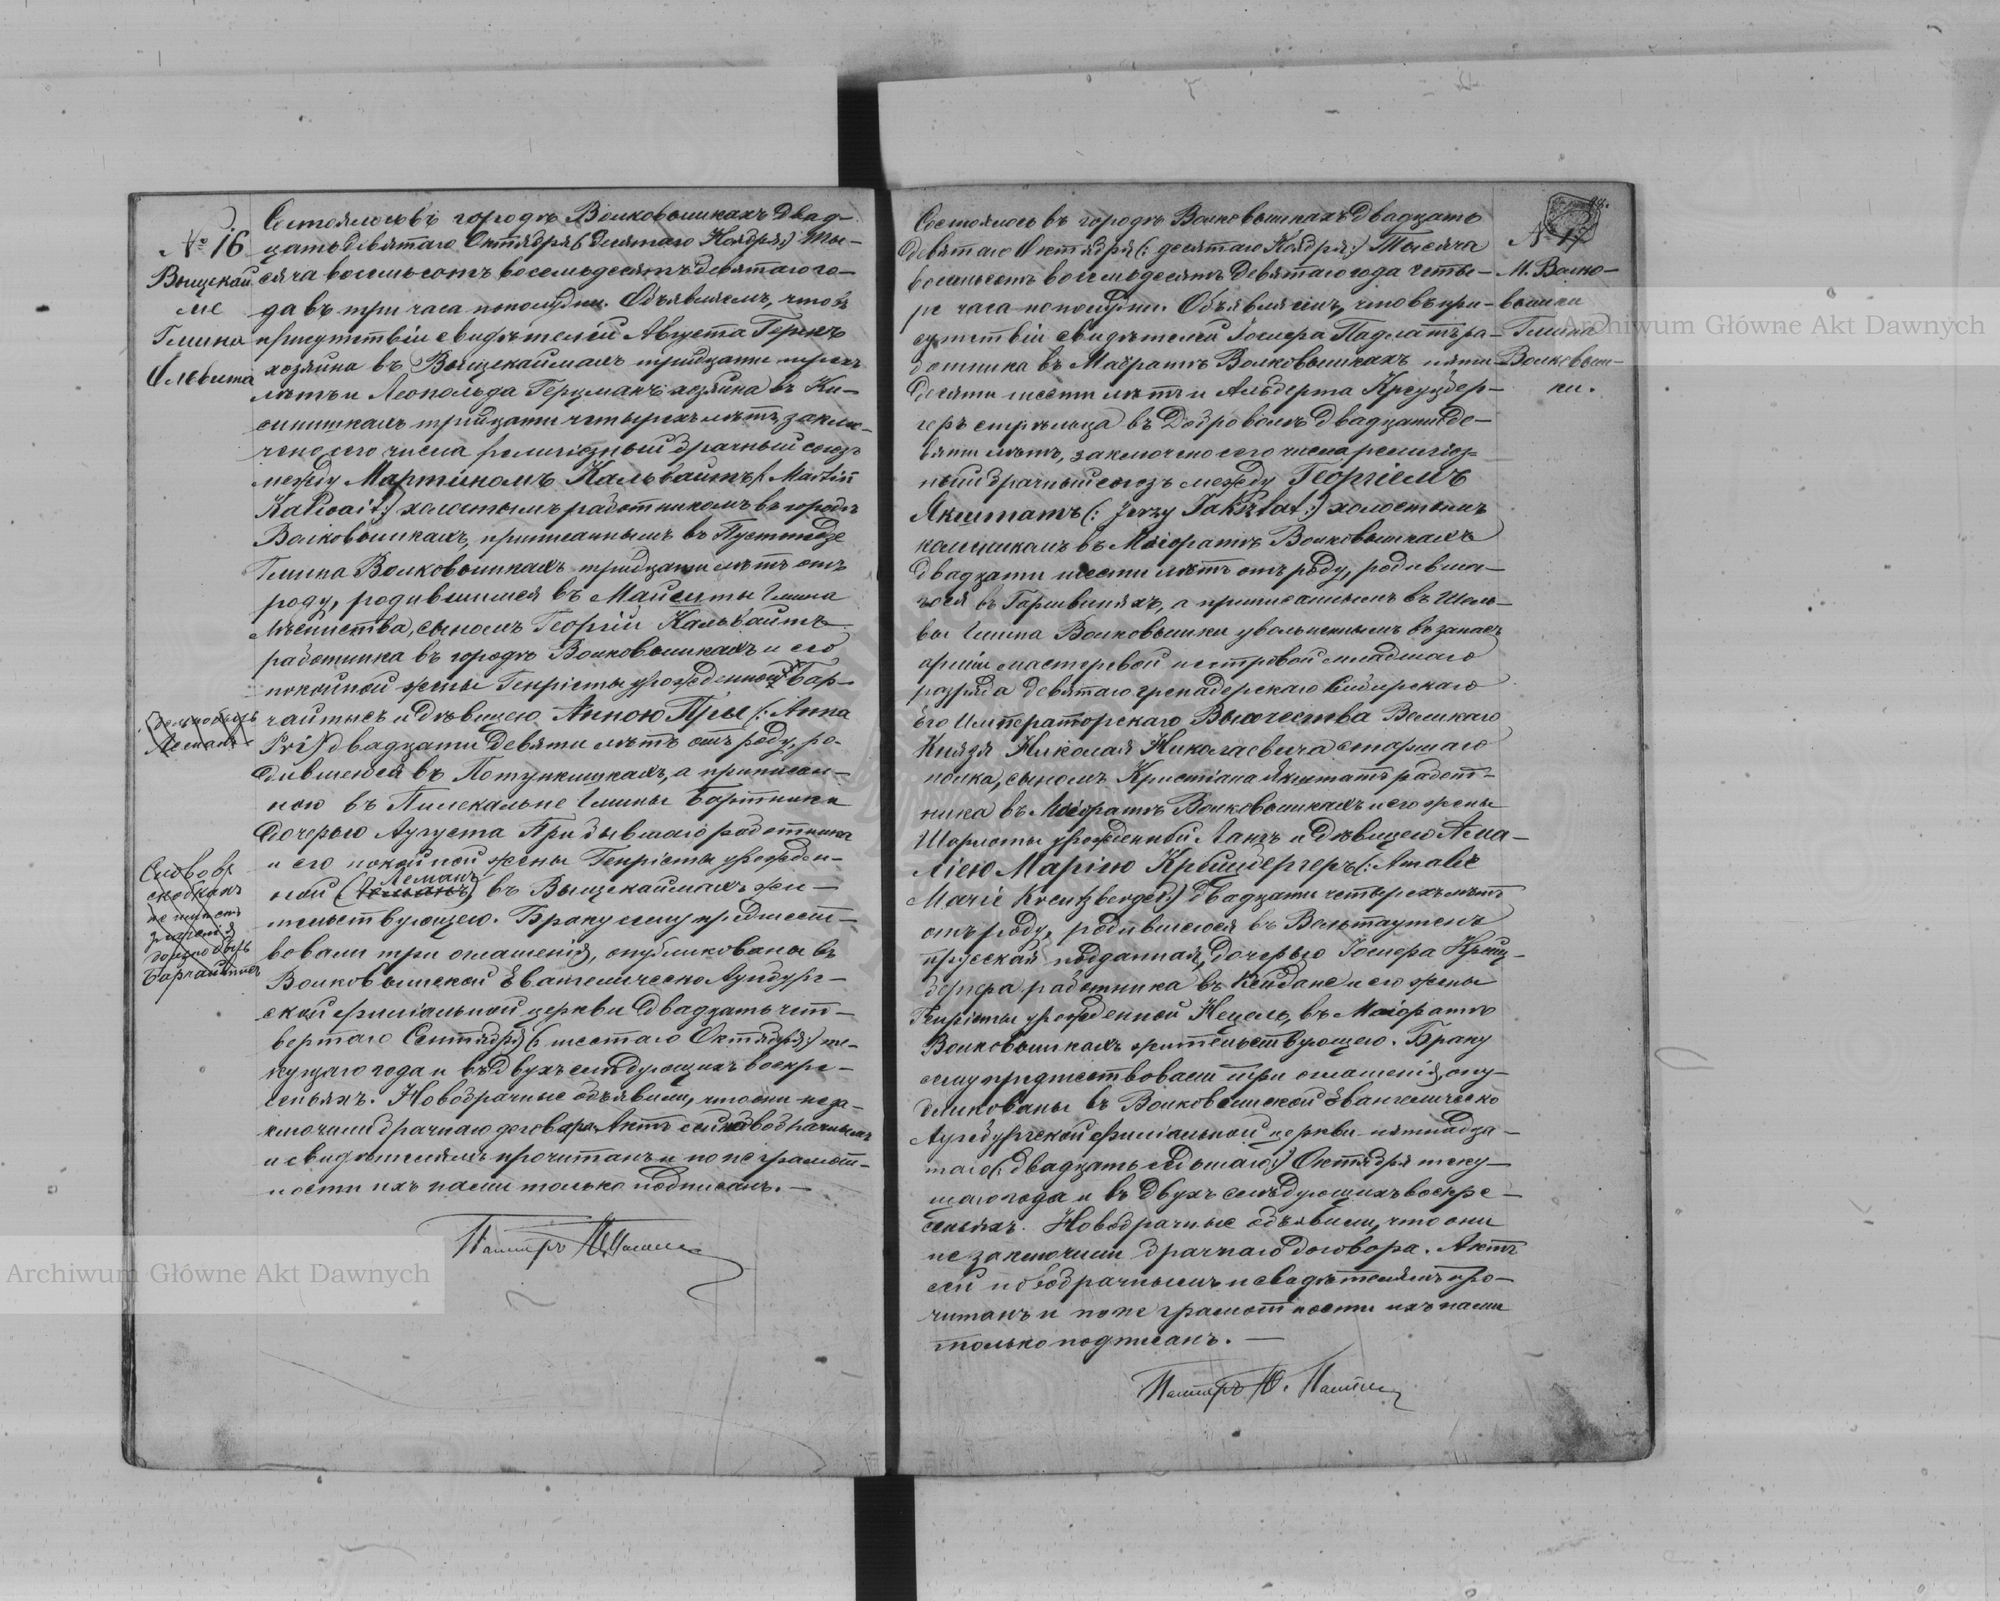 № 16
Выщекай
ме
Гмина
Состоялось въ городѣ Волковышкахъ двад-
цать девятаго Октября (: десятаго Ноября:) ты-
сяча восемьсотъ восемьдесятъ девятаго го-
да въ три часа пополудни. Объявляемъ, что въ
присутствіи свидѣтелей Августа Геринъ
хозяина въ Выщекаймахъ тридцати трехъ
лѣтъ и Леопольда Герцманъ хозяина въ Ки-
синишкахъ тридцати четырехъ лѣтъ, заклю-
чено сего числа религіозный брачный союзъ
между Мартиномъ Кальвайтъ (: Martin
Kalwait:) холостымъ работникомъ въ городѣ
Волковышкахъ, приписаннымъ въ
Гмина Волковышкахъ тридцати лѣтъ отъ
роду, родившимся въ Гмина
сыномъ Георгій Кальвайтъ
работника въ городѣ Волковышкахъ и его
покойной жены Генріеты урожденной Бар-
чайтысъ и дѣвицею Анною При (: Anna
Pri:) двадцати девяти лѣтъ отъ роду, ро-
дившеюся въ а приписан-
ною въ Гмины Бартники
дочерью Августа При бывшаго работника
и его покойной жены Генріеты урожден-
ной Леманъ въ Выщекаймахъ жи-
тельствующею. Браку сему предшест-
вовали три оглашенія, опубликованы въ
Волковышской Евангелическо Аугсбург-
ской филіальной церкви двадцать чет-
вертаго Сентября (: шестаго Октября:) те-
кущаго года и въ двухъ слѣдующихъ воскре-
сеньяхъ. Новобрачные объявили, что они не за-
ключили брачнаго договора. Актъ сей новобрачнымъ
и свидѣтелямъ прочитанъ и по неграмот-
ности ихъ нами только подписанъ. —
Пасторъ
№ 17
М. Волко-
вышки
Гмина
Волковыш-
ки.
Состоялось въ городѣ Волковышкахъ двадцать
девятаго Октября (: десятаго Ноября:) тысяча
восемьсотъ восемьдесятъ девятаго года четы-
ре часа пополудни. Объявляемъ, что въ при-
сутствіи свидѣтелей Іосифа Падлатъ ра-
ботника въ Маіоратъ Волковышкахъ пяти-
десяти шести лѣтъ и Альберта Крейцбер-
геръ стрѣльца въ Добровольѣ двадцати де-
вяти лѣтъ, заключено сего числа религіоз-
ный брачный союзъ между Георгіемъ
Якштатъ (: Jerzy Jaksztat:) холостымъ
въ Маіоратѣ Волковышкахъ
двадцати шести лѣтъ отъ роду, родивша-
гося въ а приписаннымъ въ Шель-
вы Гмина Волковышки увольненнымъ въ запасъ
арміи мастеровой нестроевой младшаго
разряда девятаго гренадерскаго Сибирскаго
Его Императорскаго Высочества Великаго
Князя Николая Николаевича старшаго
полка, сыномъ Кристіана Якштатъ работ-
ника въ Маіоратѣ Волковышкахъ и его жены
Шарлоты урожденной Ланъ и дѣвицею Ама-
ліею Маріею Крейцбергеръ (: Amalie
Marie Kreutzberger:) двадцати четырехъ лѣтъ
отъ роду, родившеюся въ
прусская подданная, дочерью Іосифа Крейц-
бергера работника въ и его жены
Генріеты урожденной въ Маіоратѣ
Волковышкахъ жительствующею. Браку
сему предшествовали три оглашенія, опу-
бликованы въ Волковышской Евангелическо
Аугсбургской филіальной церкви пятнадца-
таго (: двадцать седьмаго:) Октября теку-
щаго года и въ двухъ слѣдующихъ воскре-
сеньяхъ. Новобрачные объявили, что они
не заключили брачнаго договора. Актъ
сей новобрачнымъ и свидѣтелямъ про-
читанъ и по неграмотности ихъ нами
только подписанъ. —
Пасторъ
Archiwum Główne Akt Dawnych
Archiwum Główne Akt Dawnych